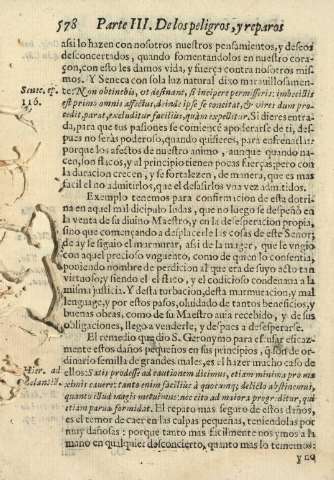 578 Parte III. De los peligros, y reparos
assi lo hazen con nosotros nuestros pensamientos, y deseos
desconcertados, quando fomentandolos en nuestro cora-
çon, con esto les damos vida, y fuerça contra nosotros mis-
mos. Y Seneca con sola luz natural dixo marauillosamen-
Senec. ep. te: Non obtinebis, ut desinant, si incipere permisseris: imbecillis
116. est primo omnis affectus, deinde ipse se concitat, & vires dum pro-
cedit, parat, excluditur facilius, quàm expellitur. Si dieres entra-
da, para que tus pasiones se comience apoderarse de ti, des-
pues no seràs poderoso, quando quisieres, para enfrenallas:
porque los afectos de nuestro animo, aunque quando na-
cen, son flacos, y al principio tienen pocas fuerças; pero con
la duracion crecen, y se fortalezen, de manera, que es mas
facil el no admitirlos, que el desasirlos vna vez admitidos.
Exemplo tenemos para confirmacion de esta dotri-
na en aquel mal dicipulo Iudas, que no luego se despeñò en
la venta de su diuino Maestro, y en la desesperacion propia,
sino que començando a desplacerle las cosas de este Senor;
de ay se siguio el murmurar, assi de la muger, que le vngio
con aquel precioso vnguento, como de quien lo consentia,
poniendo nombre de perdicion al que era de suyo acto tan
virtuoso; y siendo el el iniusto, y el codicioso condenaua a la
misma justicia. Y desta turbacion, desta murmuracion, y mal
lenguage, y por estos pasos, oluidado de tantos beneficios, y
buenas obras, como de su Maestro auia recebido, y de sus
obligaciones, llegò a venderle, y despues a desesperarse.
El remedio que dio S. Geronymo para escusar eficaz-
mente estos daños pequeños en sus principios, q̃ son de or-
dinario semilla de grandes males, es el hazer mucho caso de
Hier. ad ellos: Satis prodesse ad cautionem dicimus, etiam minima pro ma
Celantiã. ximis cauere: tanto enim facilius à quocunq; delicto abstinemus,
quanto illud magis metuimus: nec cito ad maiora progreditur, qui
etiam parua formidat. El reparo mas seguro de estos daños,
es el temor de caer en las culpas pequeñas, teniendolas por
muy dañosas: porque tanto mas facilmente nos ymos a la
mano en qualquier desconcierto, quanto mas lo tememos:
y no